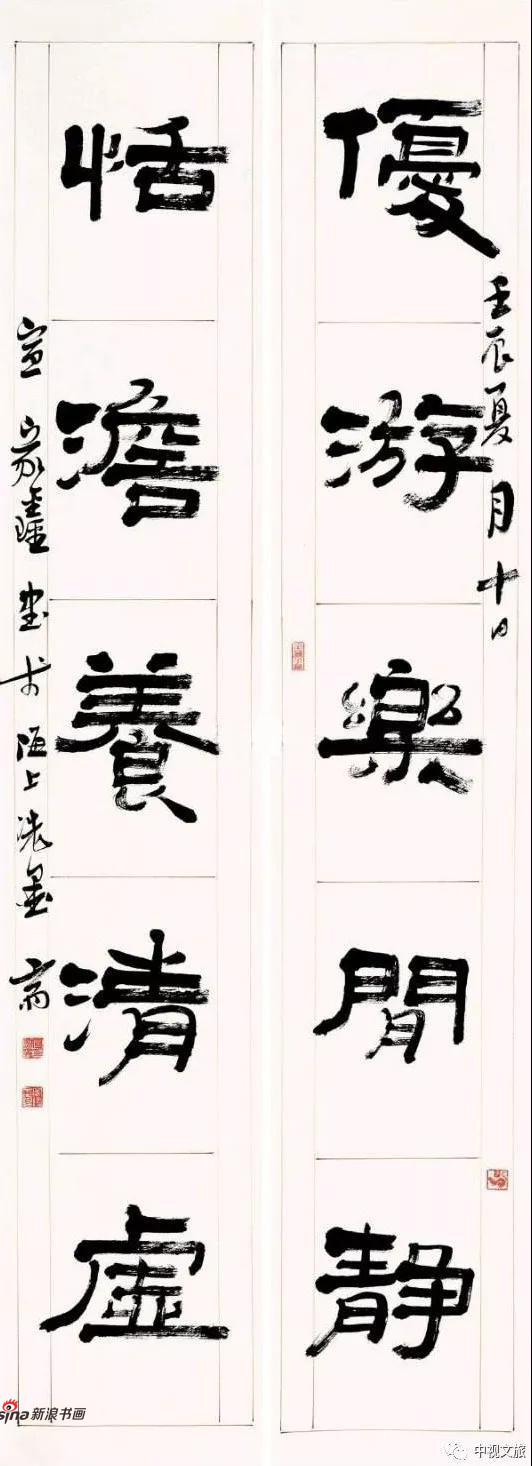 優游樂閒静
壬辰夏月十日
恬澹養清虛
宣家鑫書於陌上洗墨齋
sina新浪书画
中视文旅